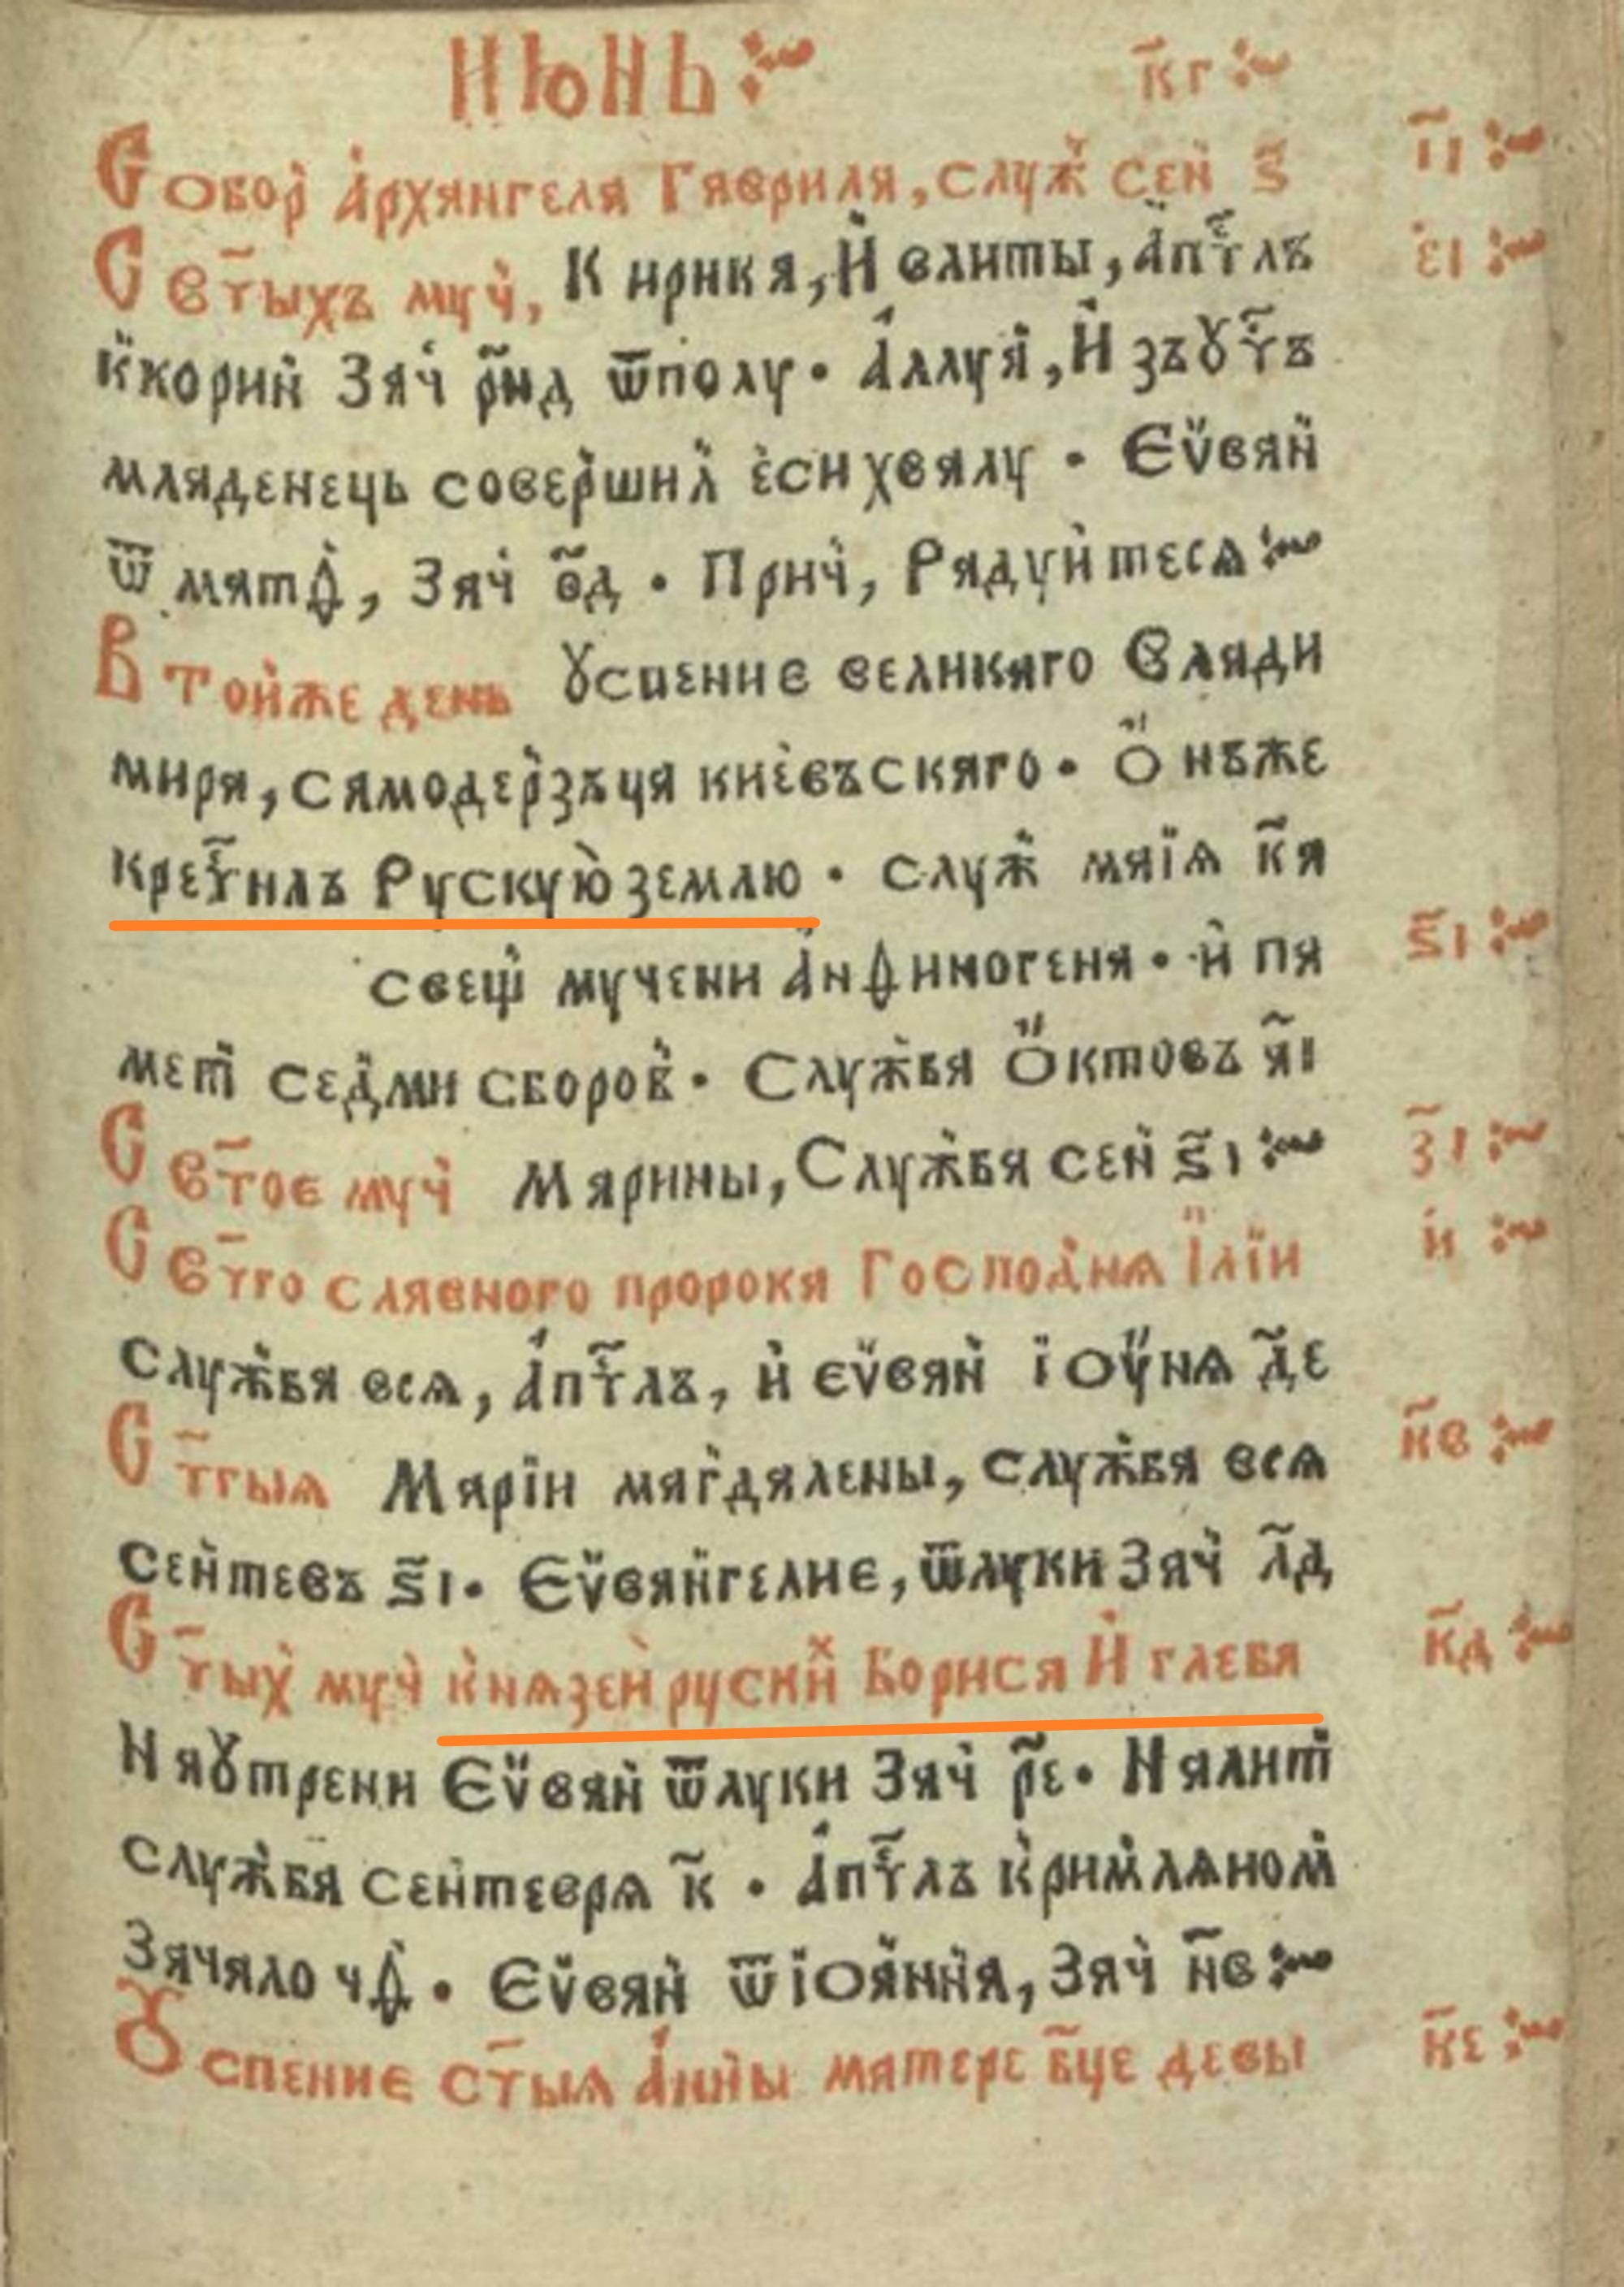 Июнь к҃г
Собор Архангела Гавриила, служ сен ѕ҃ г҃і
Свет҃ыхъ муч, Кирика, И влиты, Апⷭ҇тлъ е҃і
Ккорин Зач р҃нд ѿполу · Аллуя, И зъꙋстъ
младенець совершил еси хвалу · Еѵван
ѿ матѳ, Зач ѳ҃д · Прич, Радуитеся
Втоиже день ꙋспение великаго Влади
мира, самодерзъца киевъскаго · О нъже
креⷭ҇тилъ Рускую землю · служ маія к҃а
свещ мучени Анѳиногена · и па ѕ҃і
мет седми сборов · Служба Октовъ а҃і
Свет҃ое муч Марины, Служба сен ѕ҃і з҃і
Свет҃го славного пророка Господня Іліи и
служба вся, Апⷭ҇тлъ, и еѵван іоуня д҃е
Ст҃гыя Маріи магдалены, служба вся к҃в
сентевъ ѕ҃і · Еѵвангелие, ѿлуки Зач л҃д
Ст҃ых муч князеи руских Бориса И глеба к҃д
Наꙋтрени Еѵван ѿлуки Зач р҃е · Налит
служба сентевря к҃ · Апⷭ҇тлъ кримляном
Зачало чѳ · Еѵван ѿ іоанна, Зач н҃в
Ꙋспение ст҃ыя Анны матере бц҃е девы к҃е